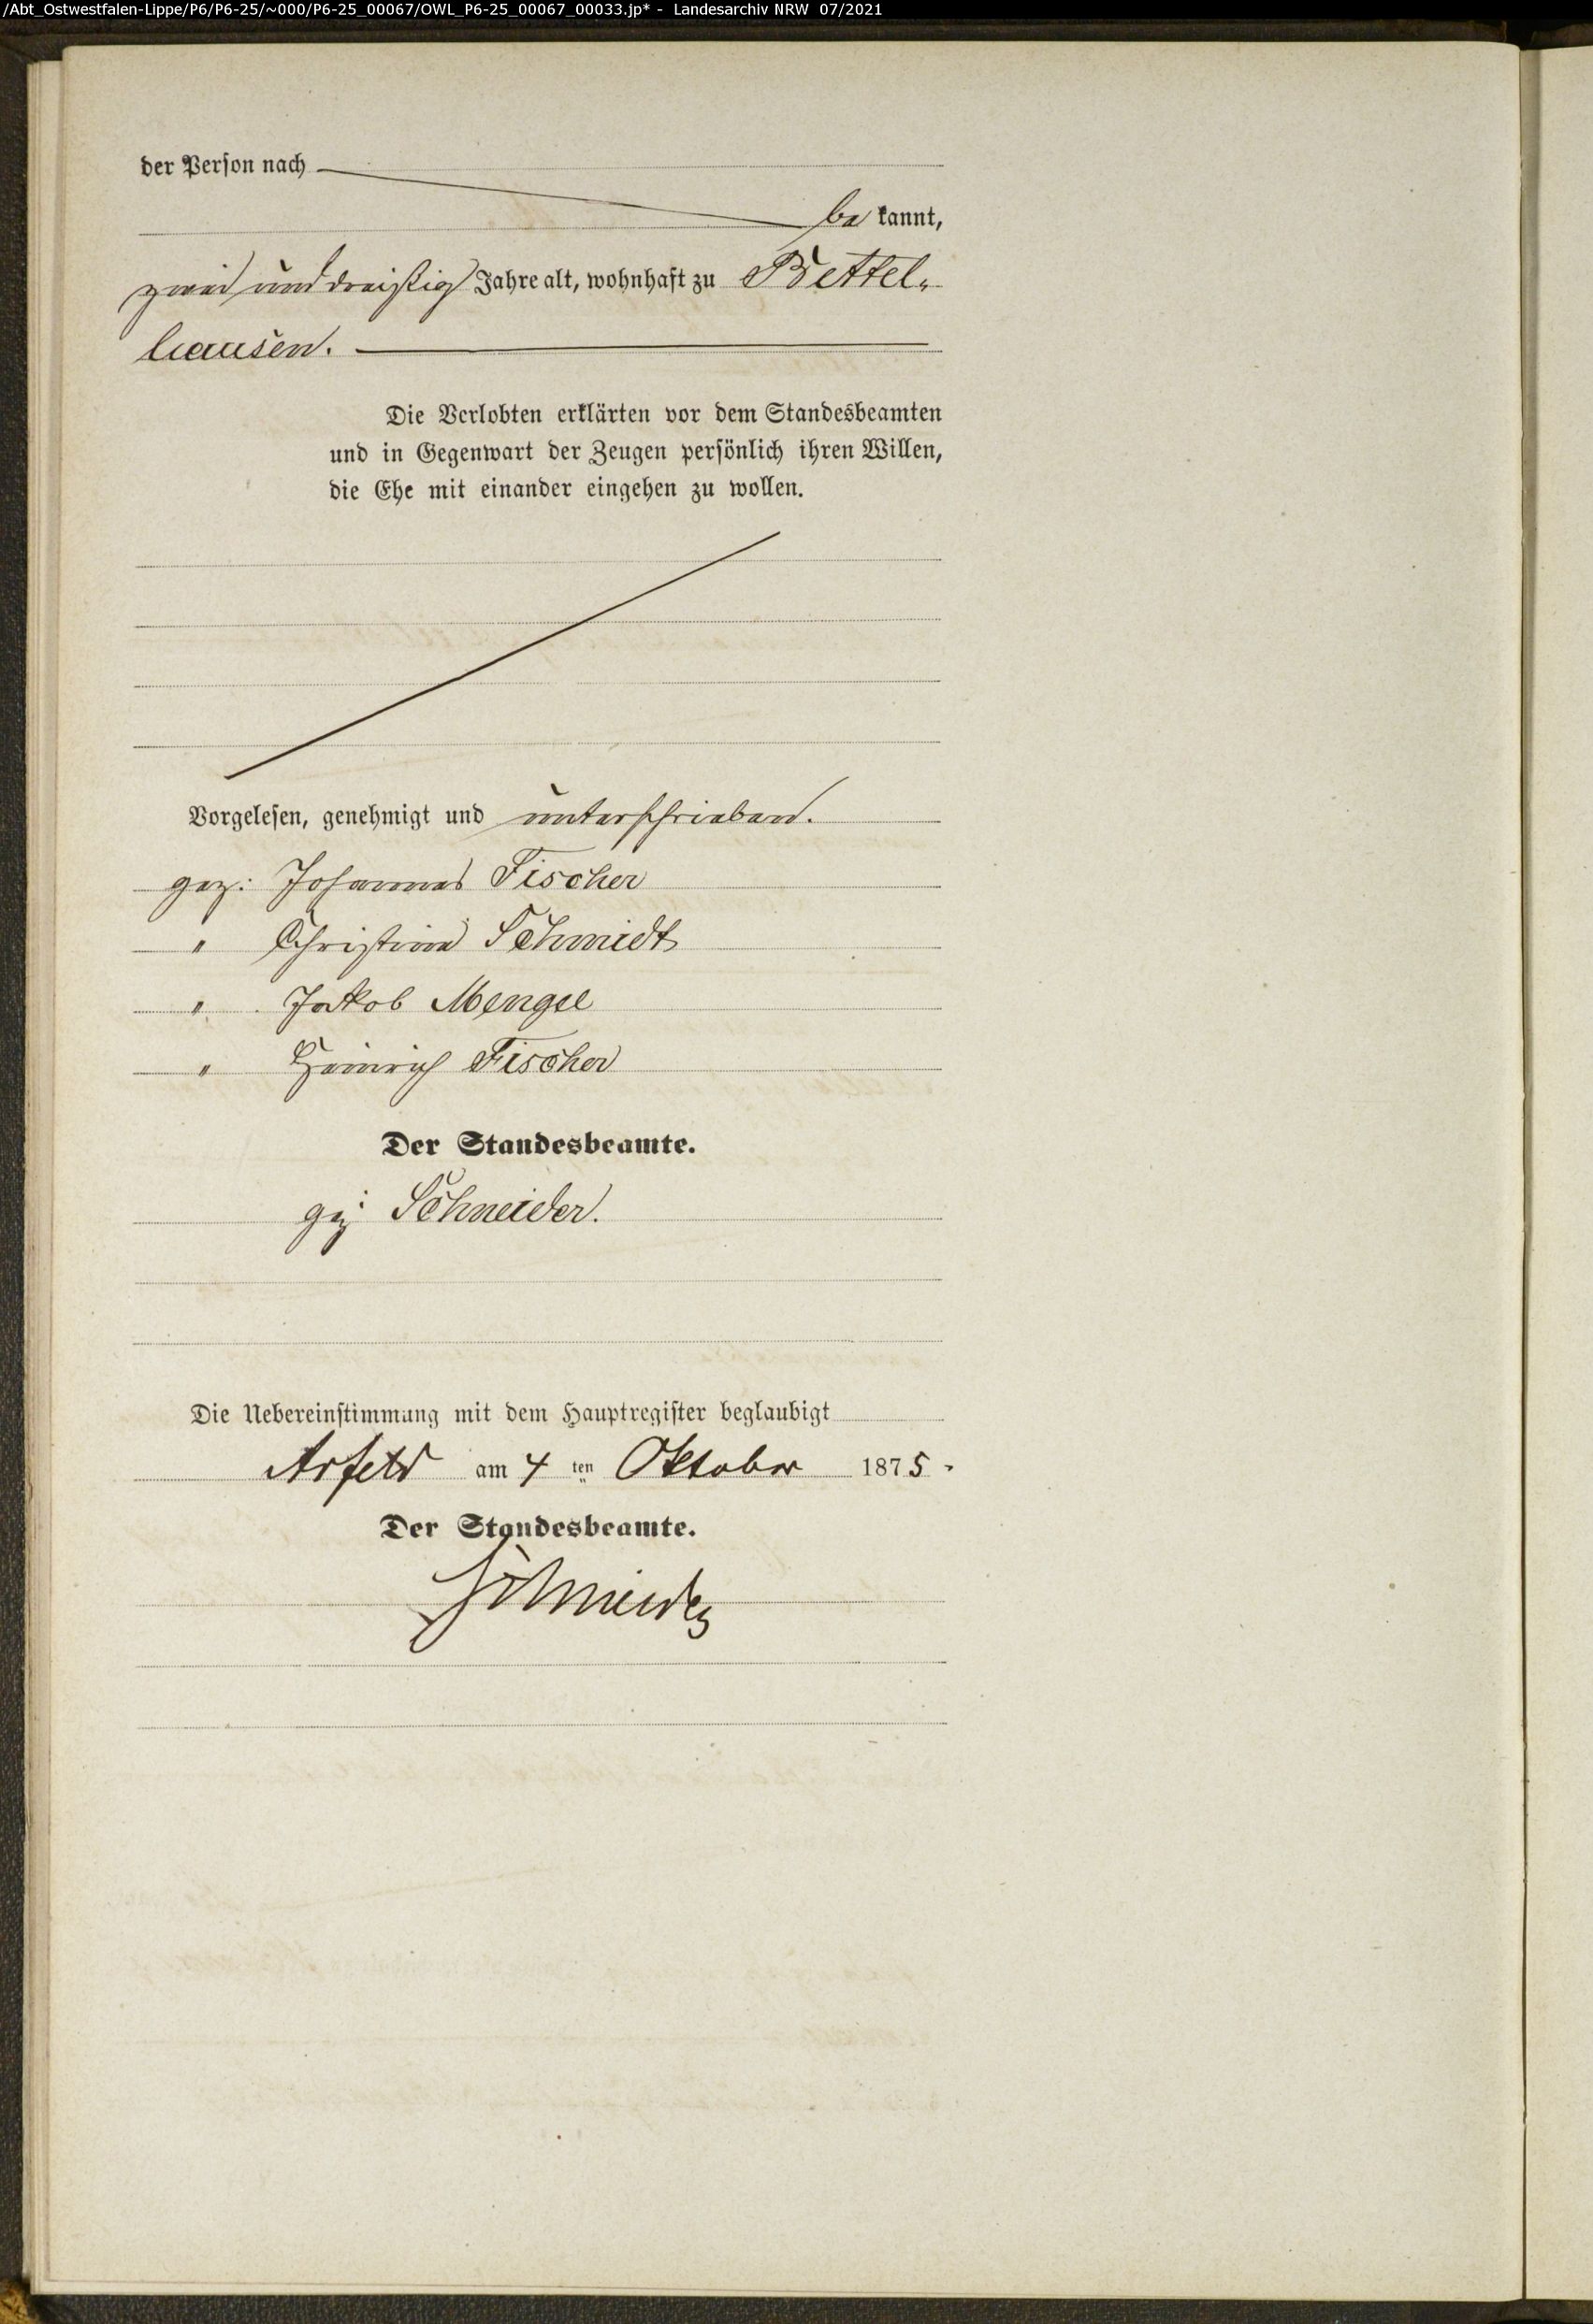 /Abt_Ostwestfalen-Lippe/P6/P6-25/~000/P6-25_00067/OWL_P6-25_00067_00033.jp* - Landesarchiv NRW 07/2021
der Person nach
be kannt,
zwei und dreißig Jahre alt, wohnhaft zu Bettel-
hausen.
Die Verlobten erklärten vor dem Standesbeamten
und in Gegenwart der Zeugen persönlich ihren Willen,
die Ehe mit einander eingehen zu wollen.
Vorgelesen, genehmigt und unterschrieben.
gez: Johannes Fischer
" Christine Schmidt
" Jakob Mengel
" Heinrich Fischer
Der Standesbeamte.
gez: Schneider.
Die Uebereinstimmung mit dem Hauptregister beglaubigt
Arfeld am 4 ten Oktober 1875.
Der Standesbeamte.
Schneider